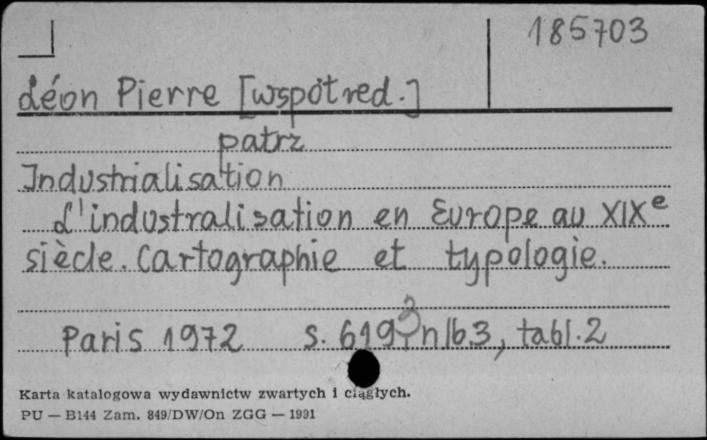 185703
Léon Pierre [współred.]
patrz
Industrialisation
L'industralisation en Europe au XIXe
siècle. Cartographie et typologie.
Paris 1972 s. 619, nlb 3, tabl. 2
Karta katalogowa wydawnictw zwartych i ciągłych.
PU — B144 Zam. 849/DW/On ZGG — 1991